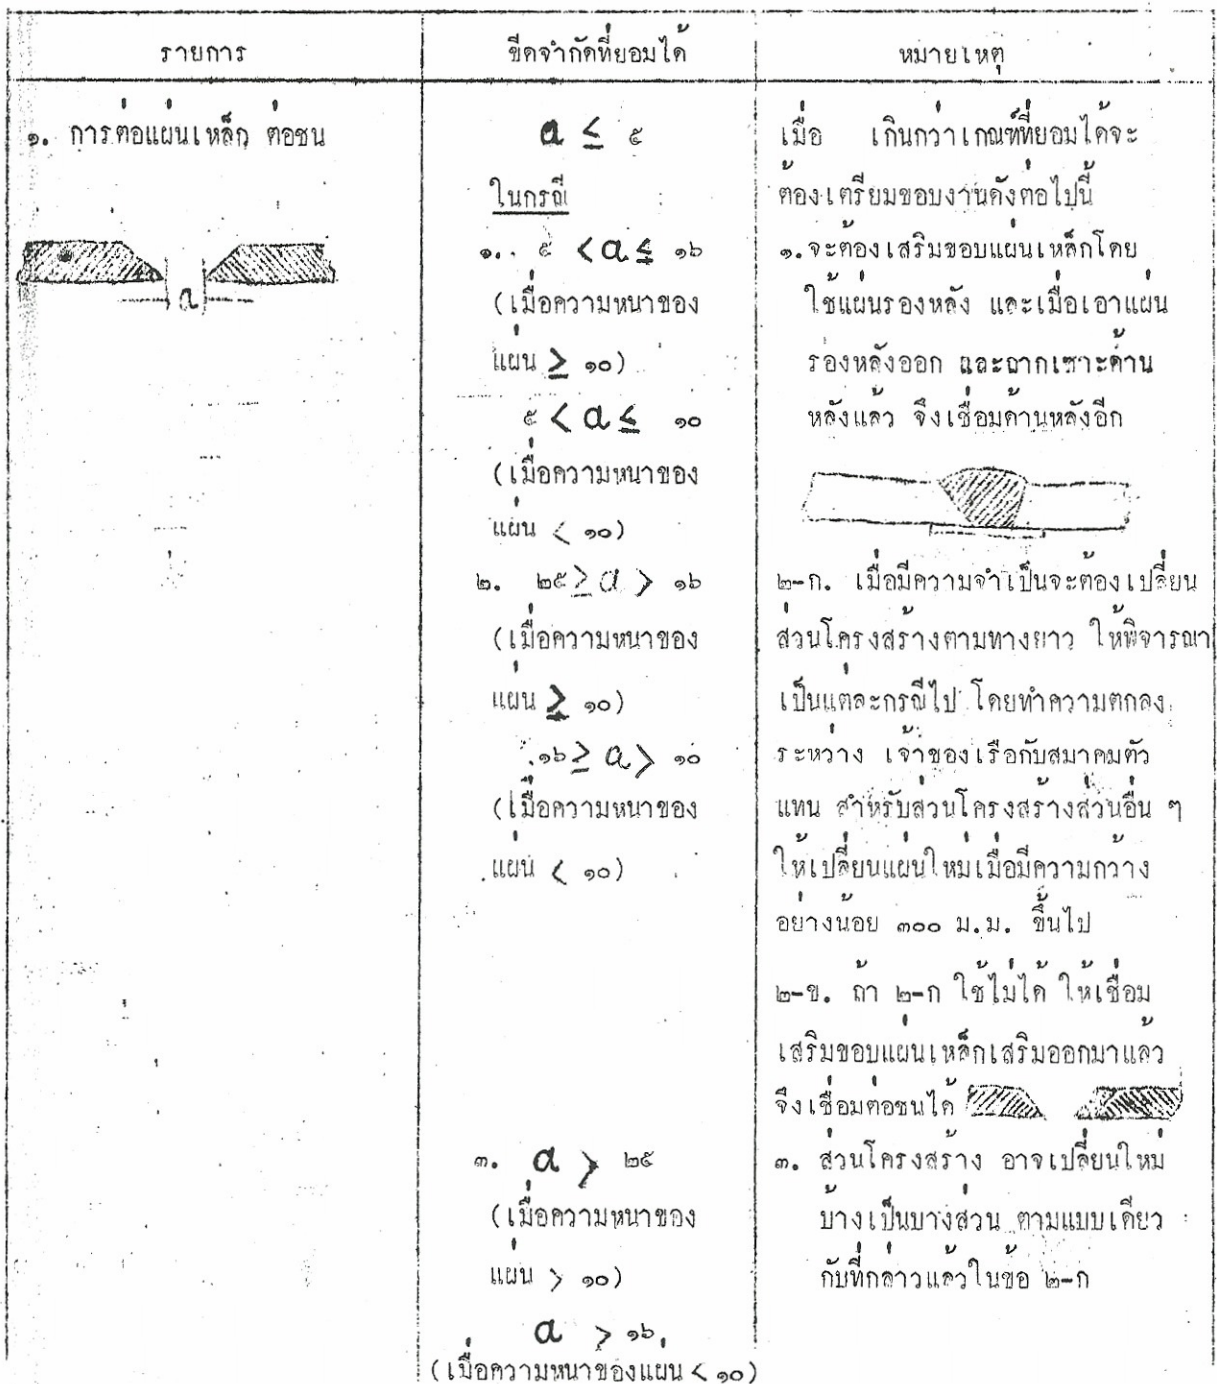 รายการ
ขีดจำกัดที่ยอมได้
หมายเหตุ
๑. การต่อแผ่นเหล็ก ต่อชน
a
a ≤ ๕
ในกรณี
๑. ๕ < a ≤ ๑๖
(เมื่อความหนาของ
แผ่น ≥ ๑๐)
๕ < a ≤ ๑๐
(เมื่อความหนาของ
แผ่น < ๑๐)
๒. ๒๕ ≥ a > ๑๖
(เมื่อความหนาของ
แผ่น ≥ ๑๐)
๑๖ ≥ a > ๑๐
(เมื่อความหนาของ
แผ่น < ๑๐)
๓. a > ๒๕
(เมื่อความหนาของ
แผ่น > ๑๐)
a > ๑๖
(เมื่อความหนาของแผ่น < ๑๐)
เมื่อ เกินกว่าเกณฑ์ที่ยอมได้จะ
ต้องเตรียมขอบงานดังต่อไปนี้
๑. จะต้องเสริมขอบแผ่นเหล็กโดย
ใช้แผ่นรองหลัง และเมื่อเอาแผ่น
รองหลังออก และถากเซาะด้าน
หลังแล้ว จึงเชื่อมด้านหลังอีก
๒-ก. เมื่อมีความจำเป็นจะต้องเปลี่ยน
ส่วนโครงสร้างตามทางยาว ให้พิจารณา
เป็นแต่ละกรณีไป โดยทำความตกลง
ระหว่าง เจ้าของเรือกับสมาคมตัว
แทน สำหรับส่วนโครงสร้างส่วนอื่น ๆ
ให้เปลี่ยนแผ่นใหม่เมื่อมีความกว้าง
อย่างน้อย ๓๐๐ ม.ม. ขึ้นไป
๒-ข. ถ้า ๒-ก ใช้ไม่ได้ ให้เชื่อม
เสริมขอบแผ่นเหล็กเสริมออกมาแล้ว
จึงเชื่อมต่อชนได้
๓. ส่วนโครงสร้าง อาจเปลี่ยนใหม่
บ้างเป็นบางส่วน ตามแบบเดียว
กับที่กล่าวแล้วในข้อ ๒-ก